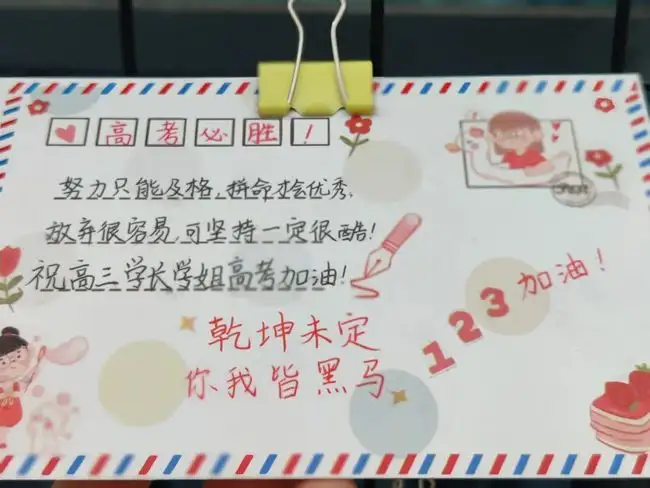 高考必胜!
努力只能及格,拼命才会优秀.
放弃很容易,可坚持一定很酷!
祝高三学长学姐高考加油!
123加油!
乾坤未定
你我皆黑马